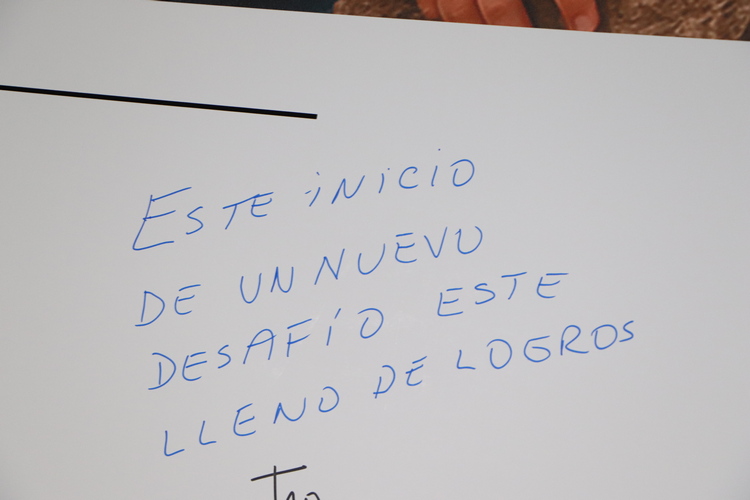 ESTE iNiCiO
DE UN NUEVO
DESAFÍO ESTE
LLENO DE LOGROS